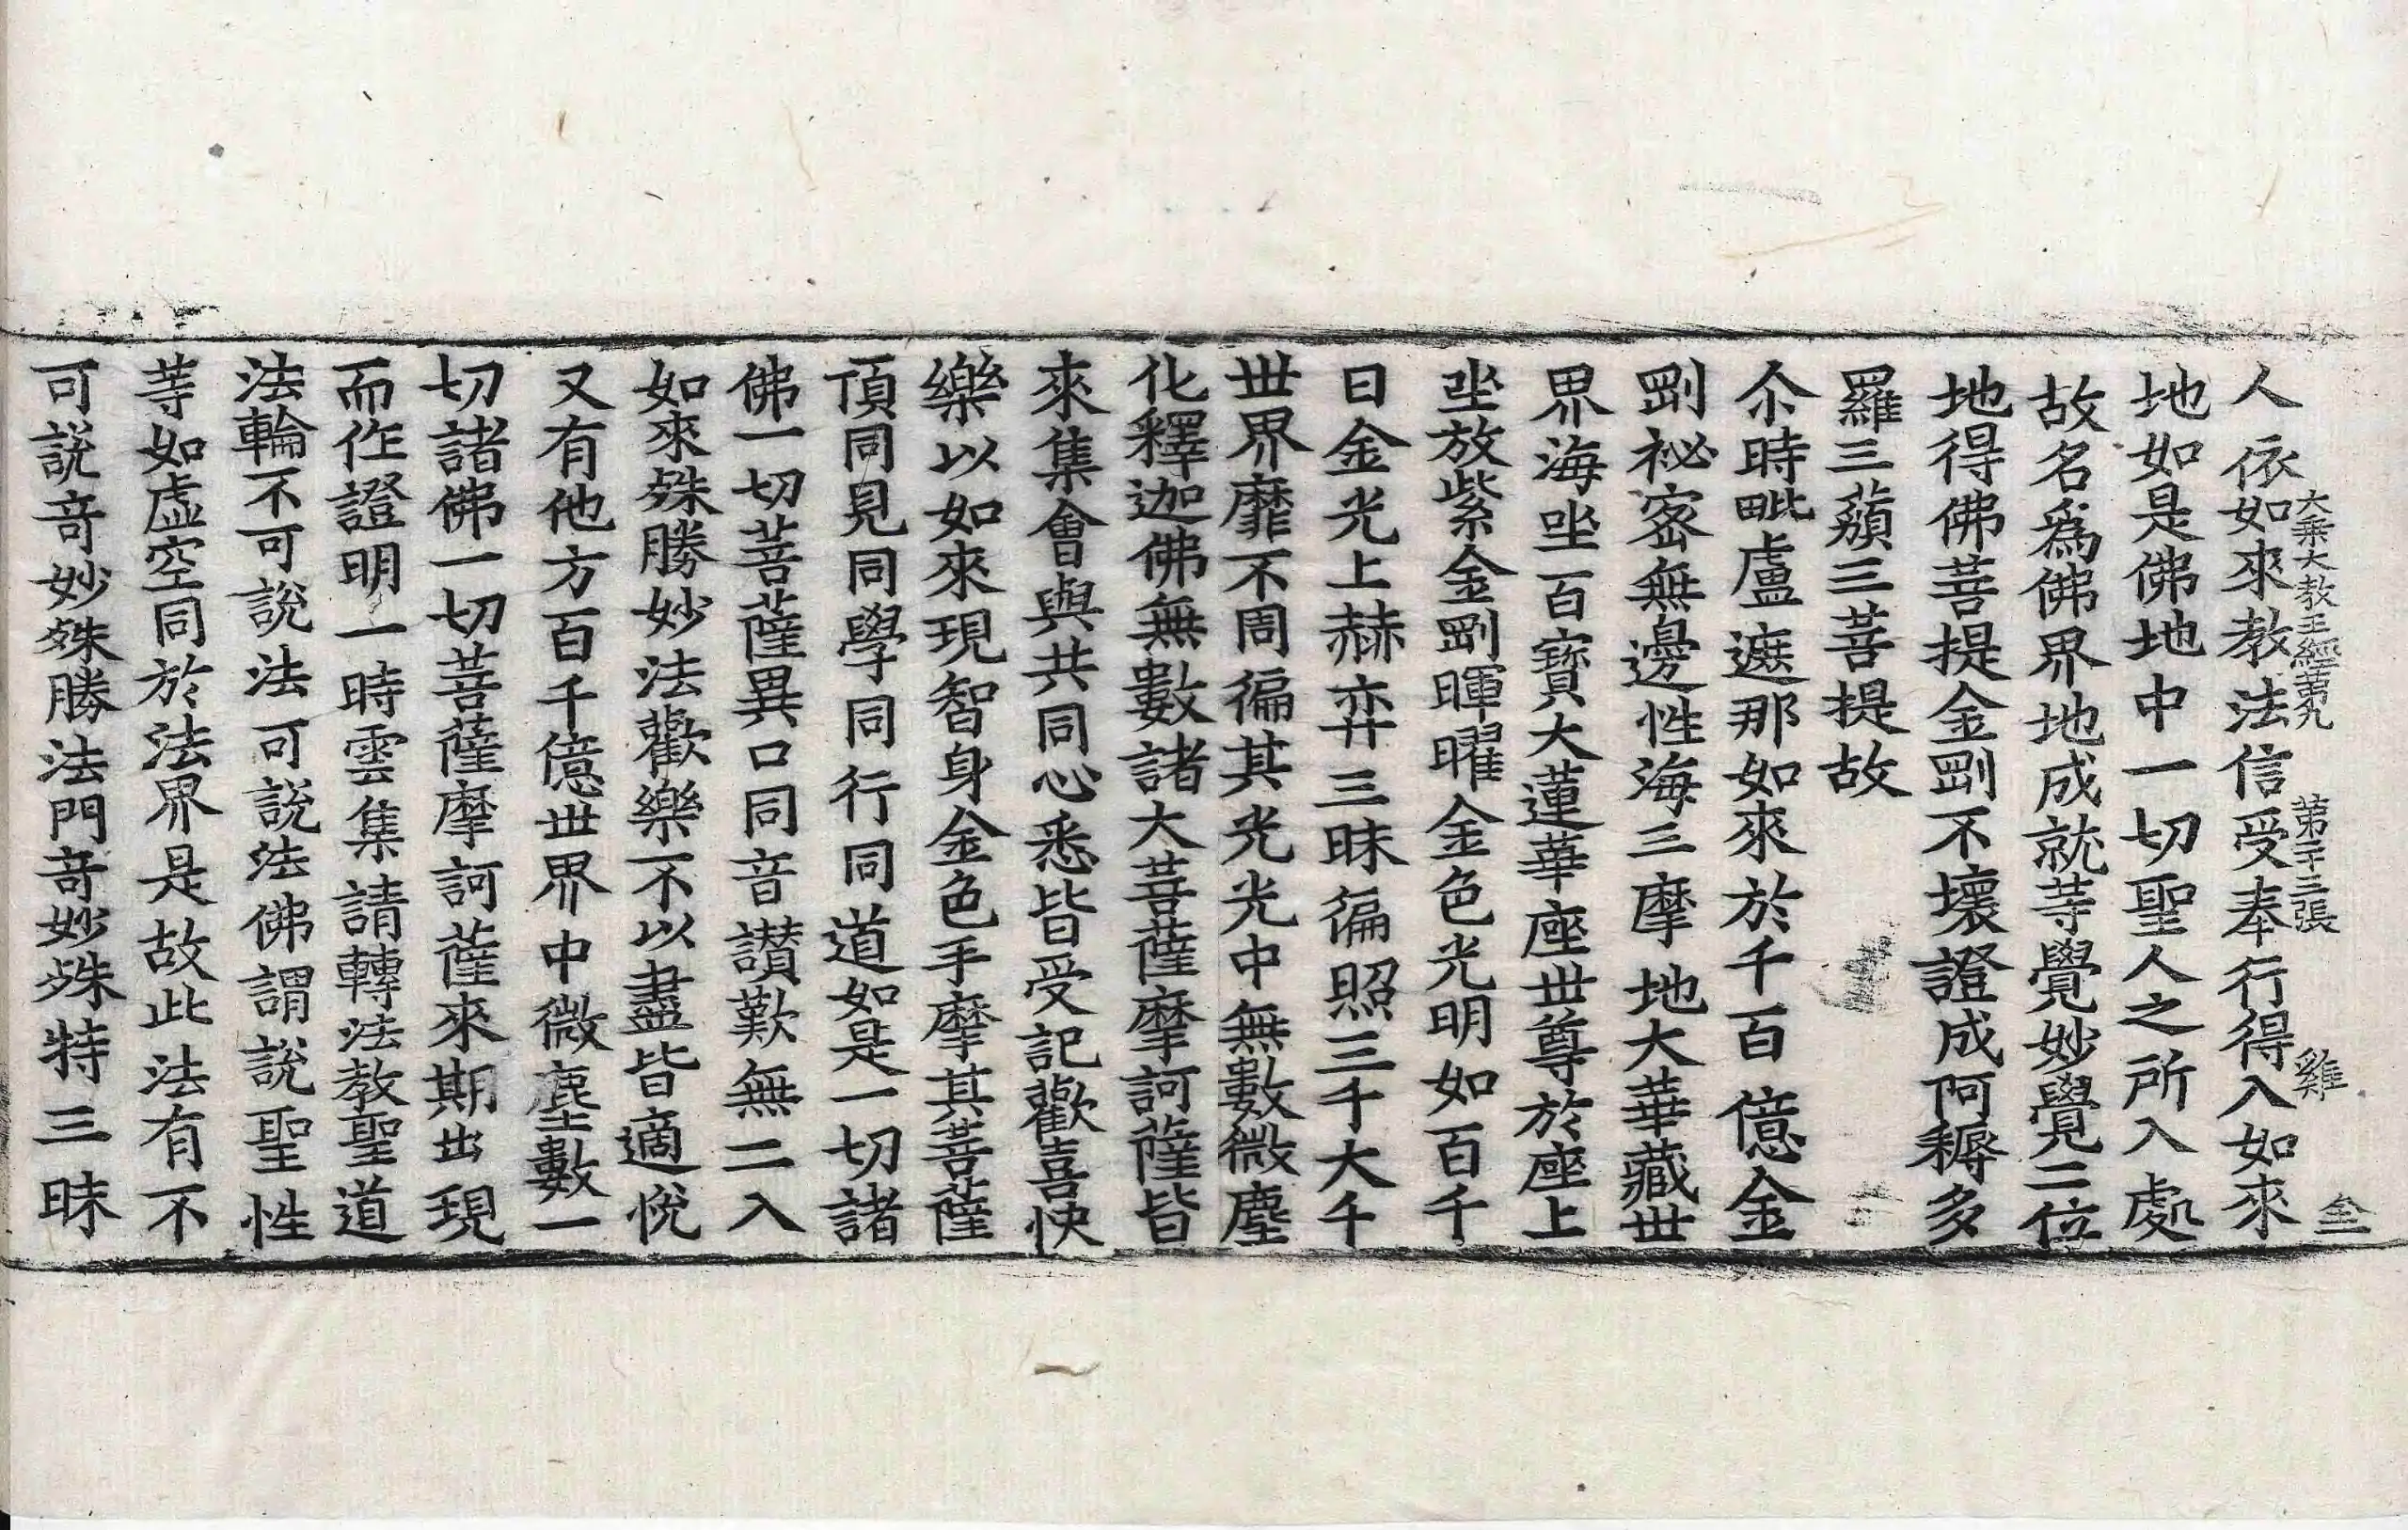 大乘大教王經第九 第十三張 雞 仝
人依如來教法信受奉行得入如來
地如是佛地中一切聖人之所入處
故名爲佛界地成就等覺妙覺二位
地得佛菩提金剛不壞證成阿耨多
羅三藐三菩提故
尒時毗盧遮那如來於千百億金
剛祕密無邊性海三摩地大華藏世
界海坐百寶大蓮華座世尊於座上
坐放紫金剛暉曜金色光明如百千
日金光上赫弈三昧徧照三千大千
世界靡不周徧其光光中無數微塵
化釋迦佛無數諸大菩薩摩訶薩皆
來集會與共同心悉皆受記歡喜快
樂以如來現智身金色手摩其菩薩
頂同見同學同行同道如是一切諸
佛一切菩薩異口同音讃歎無二入
如來殊勝妙法歡樂不以盡皆適悅
又有他方百千億世界中微塵數一
切諸佛一切菩薩摩訶薩來期出現
而作證明一時雲集請轉法教聖道
法輪不可說法可說法佛謂說聖性
等如虛空同於法界是故此法有不
可說竒妙殊勝法門竒妙殊特三昧